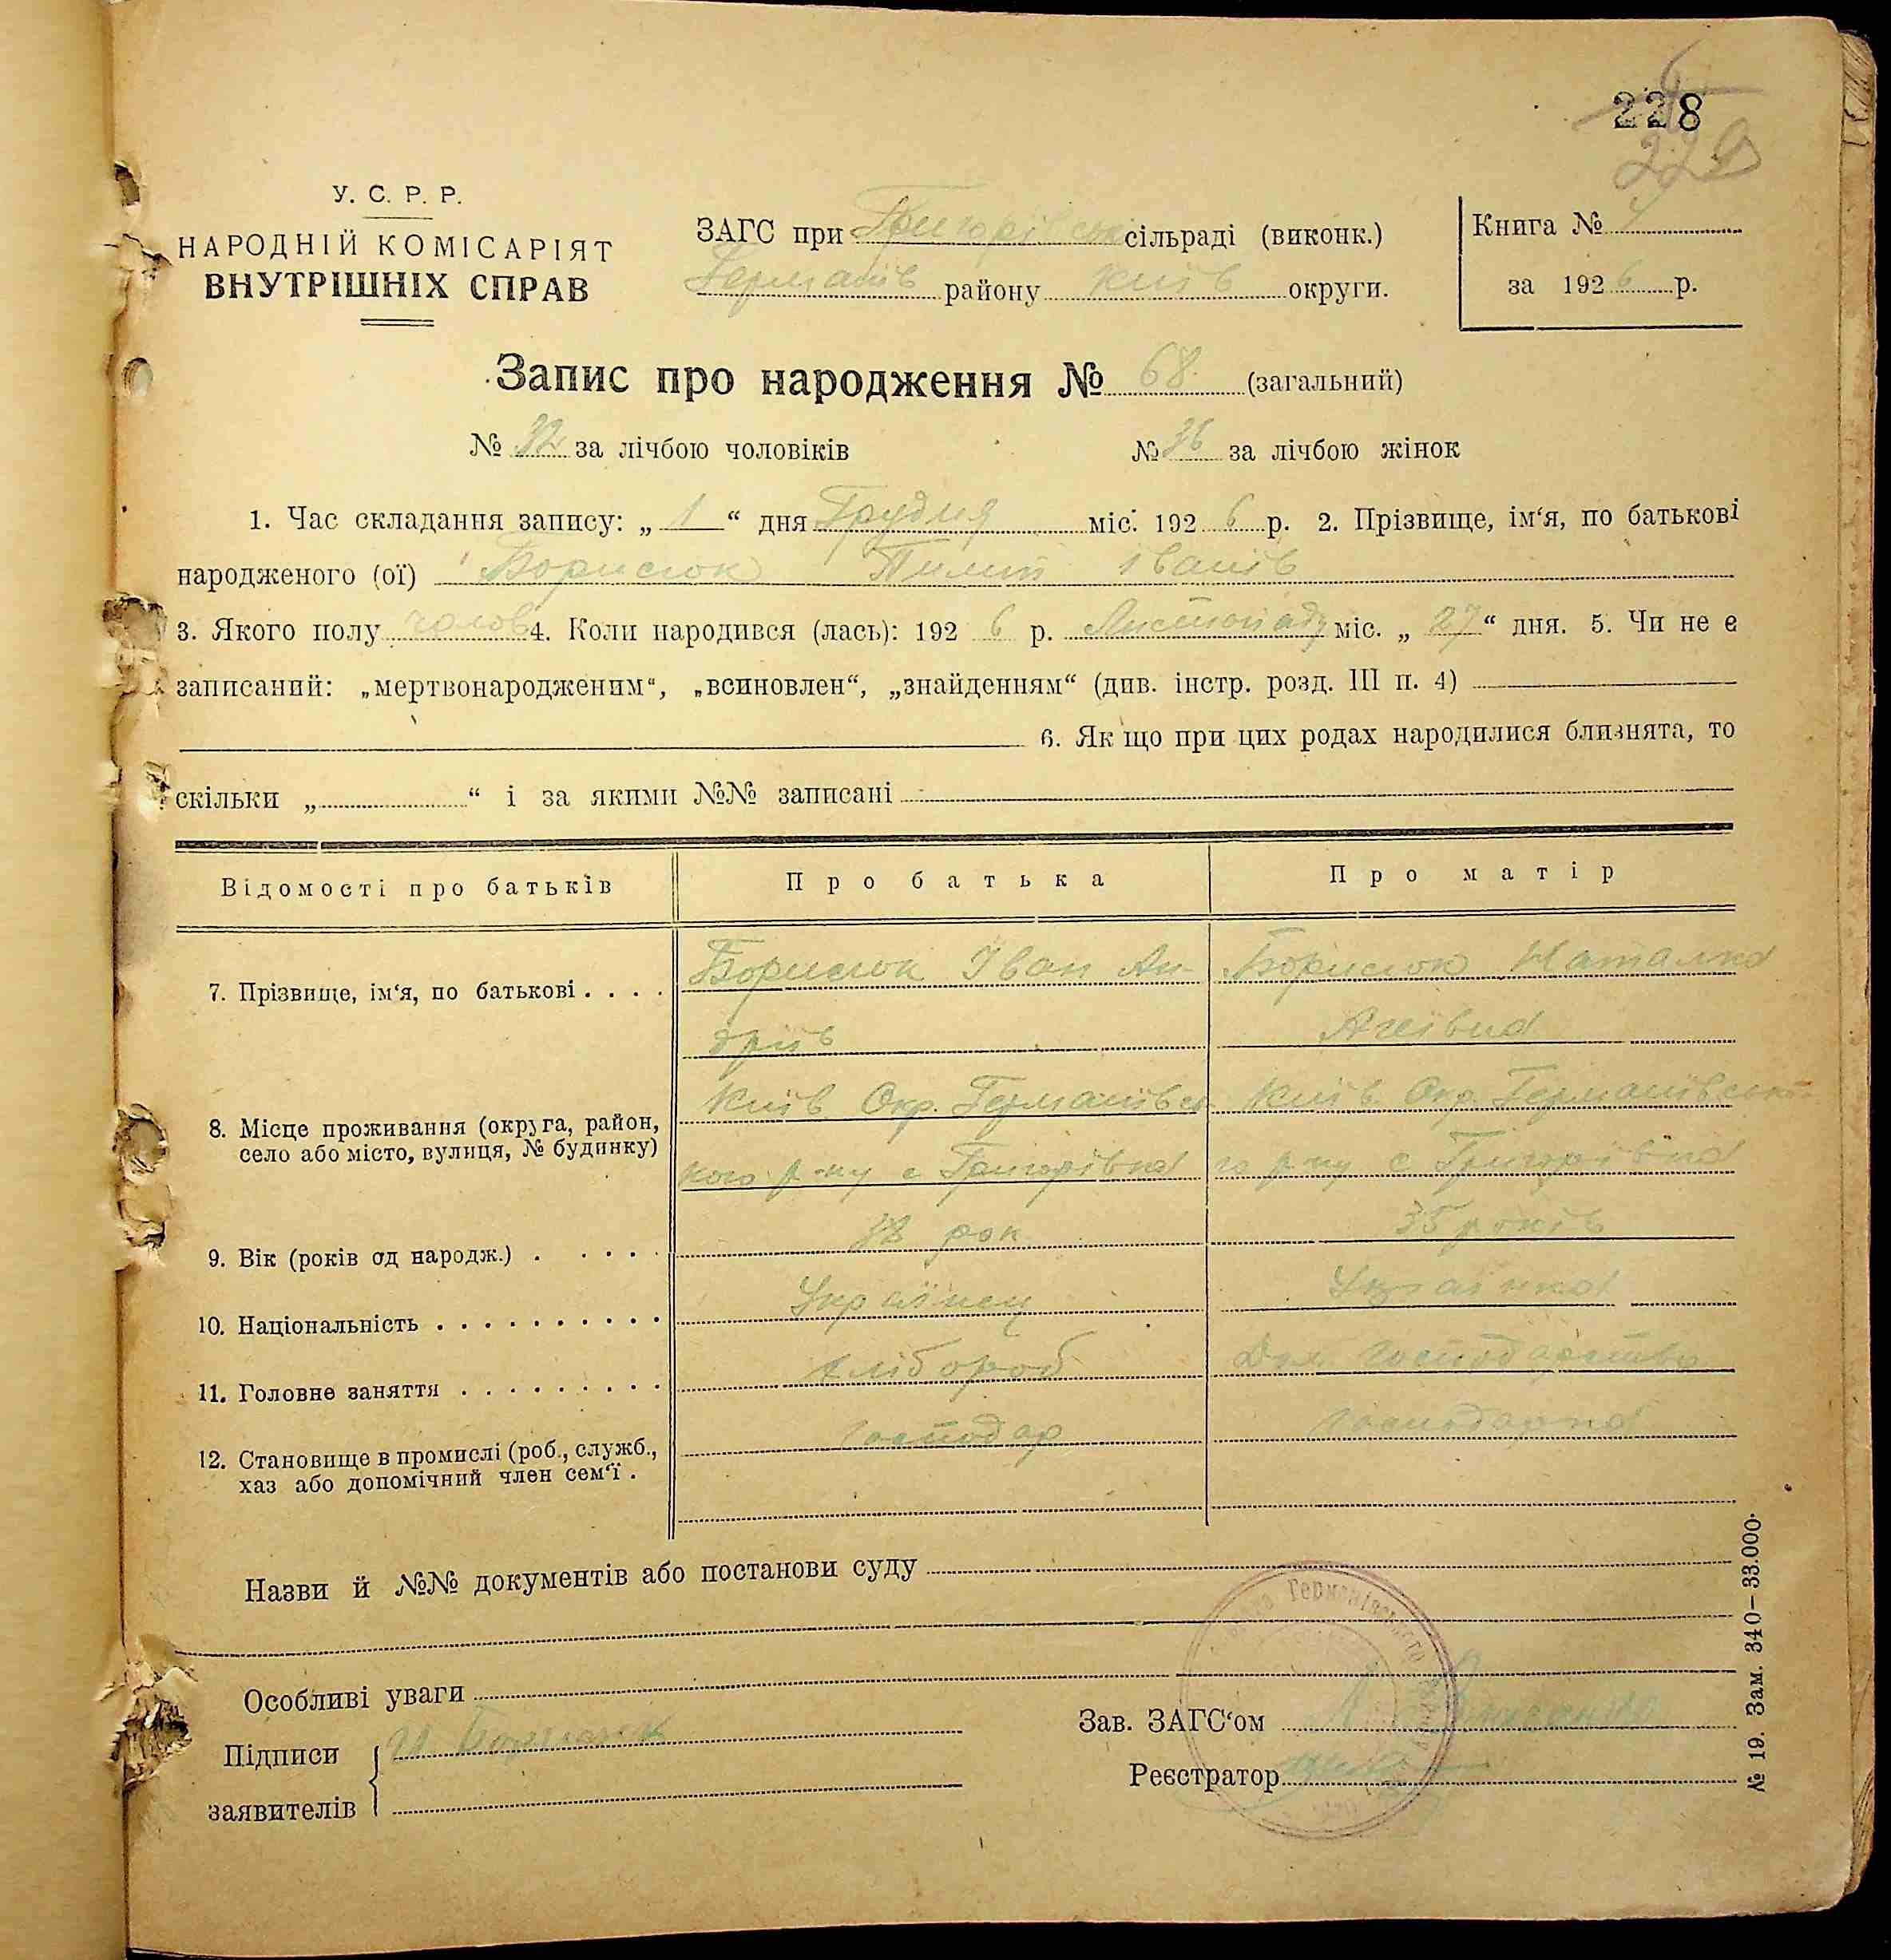 228
229
У. С. Р. Р.
НАРОДНІЙ КОМІСАРІЯТ
ВНУТРІШНІХ СПРАВ
ЗАГС при Григорівськ сільраді (виконк.)
Германів району Київ округи.
Книга №
за 1926 р.
Запис про народження № 68. (загальний)
№ 32 за лічбою чоловіків № 36 за лічбою жінок
1. Час складання запису: „ 1 “ дня Грудня міс. 1926 р. 2. Прізвище, ім‘я, по батькові
народженого (ої) Борисюк Пилип Іванів
3. Якого полу чолов 4. Коли народився (лась): 1926 р. Листопаду міс. „ 27 “ дня. 5. Чи не є
записаний: „мертвонародженим“, „всиновлен“, „знайденням“ (див. інстр. розд. III п. 4)
6. Якщо при цих родах народилися близнята, то
скільки „ “ і за якими №№ записані
Відомості про батьків Про батька Про матір
7. Прізвище, ім‘я, по батькові . . . . Борисюк Іван Ан- Борисюк Наталка
дріїв Агеівна
8. Місце проживання (округа, район, село або місто, вулиця, № будинку) Київ Окр. Германівсь Київ. Окр. Германівсько-
кого р-ну с Григорівка го р-ну с Григорівка
9. Вік (років од народж.) . . . . . 38 рок 35 років
10. Національність . . . . . . . . . . Українец Українка
11. Головне заняття . . . . . . . . . хлібороб Дом. господарство
12. Становище в промислі (роб., служб., хаз або допомічний член сем‘ї . господар господарка
Назви й №№ документів або постанови суду
Особливі уваги
Підписи
заявителів
И Борисюк
Зав. ЗАГС‘ом
Реєстратор
Германівського району
№ 19. Зам. 340–33.000.